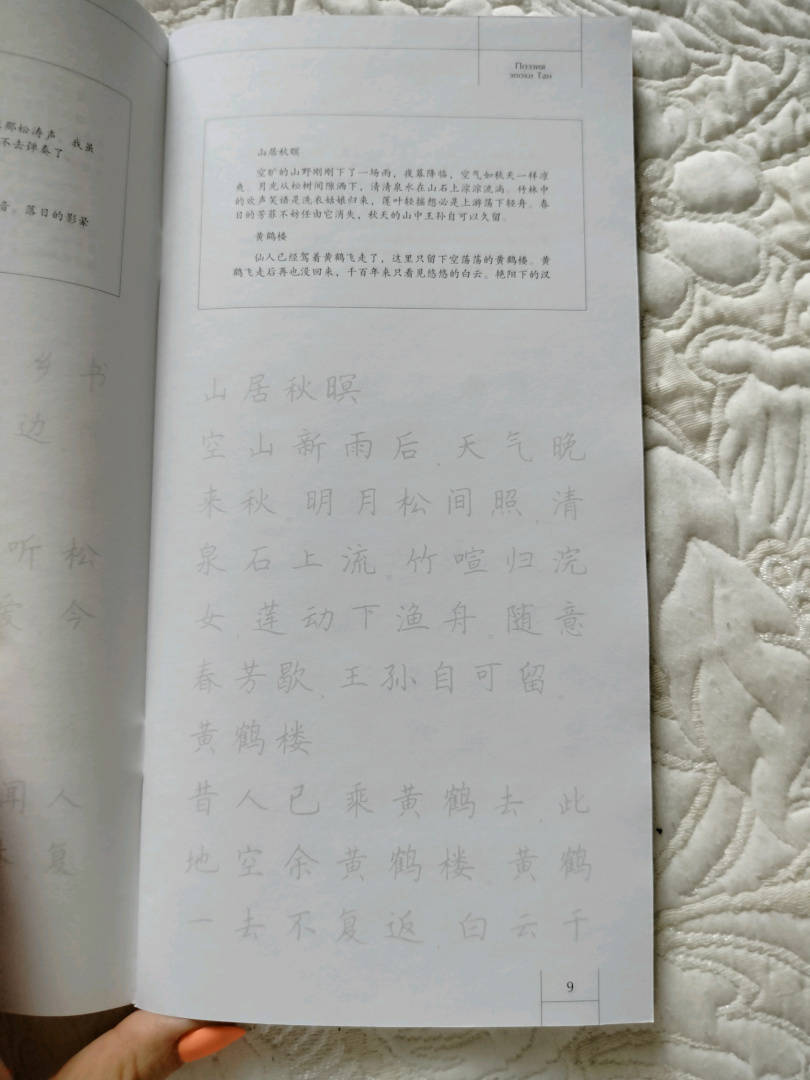 那松涛声。我虽
不去弹奏了
音。落日的影晕
乡 书
边
听 松
今
闻 人
复
Поэзия
эпохи Тан
山居秋暝
空旷的山野刚刚下了一场雨，夜幕降临，空气如秋天一样凉
爽。月光从松树间隙洒下，清清泉水在山石上淙淙流淌。竹林中
的欢声笑语是洗衣姑娘归来，莲叶轻摇想必是上游荡下轻舟。春
日的芳菲不妨任由它消失，秋天的山中王孙自可以久留。
黄鹤楼
仙人已经驾着黄鹤飞走了，这里只留下空荡荡的黄鹤楼。黄
鹤飞走后再也没回来，千百年来只看见悠悠的白云。艳阳下的汉
山居秋暝
空山新雨后，天气晚
来秋。明月松间照，清
泉石上流。竹喧归浣
女，莲动下渔舟。随意
春芳歇，王孙自可留。
黄鹤楼
昔人已乘黄鹤去，此
地空余黄鹤楼。黄鹤
一去不复返，白云千
9